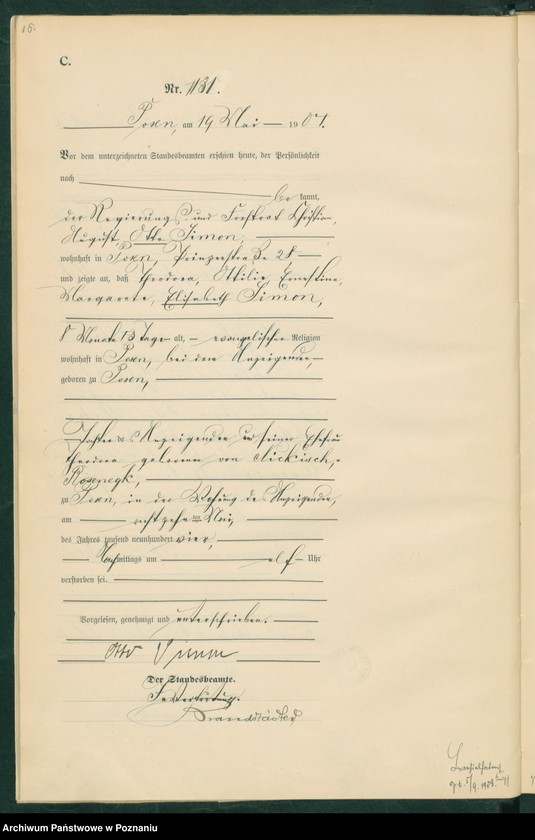 16.
C.
Nr. 1131.
Posen, am 19 Mai 1904.
Vor dem unterzeichneten Standesbeamten erschien heute, der Persönlichkeit
nach
be kannt,
der Regierungs und Forstrat Christian,
August, Otto Simon,
wohnhaft in Posen, Prinzenstraße 28
und zeigte an, daß Theodora, Ottilie, Ernestine,
Margarete, Elisabeth Simon,
8 Monate 13 Tage alt, evangelischer Religion
wohnhaft in Posen, bei dem Anzeigenden,
geboren zu Posen,
Tochter des Anzeigenden und seiner Ehefrau
Theodora geborenen von Nickisch,
Rosenegk,
zu Posen, in der Wohnung des Anzeigenden,
am achtzehnten Mai,
des Jahres tausend neunhundert vier,
Nachmittags um elf Uhr
verstorben sei.
Vorgelesen, genehmigt und unterschrieben.
Otto Simon
Der Standesbeamte.
In Vertretung.
Brandstädter
Archiwum Państwowe w Poznaniu